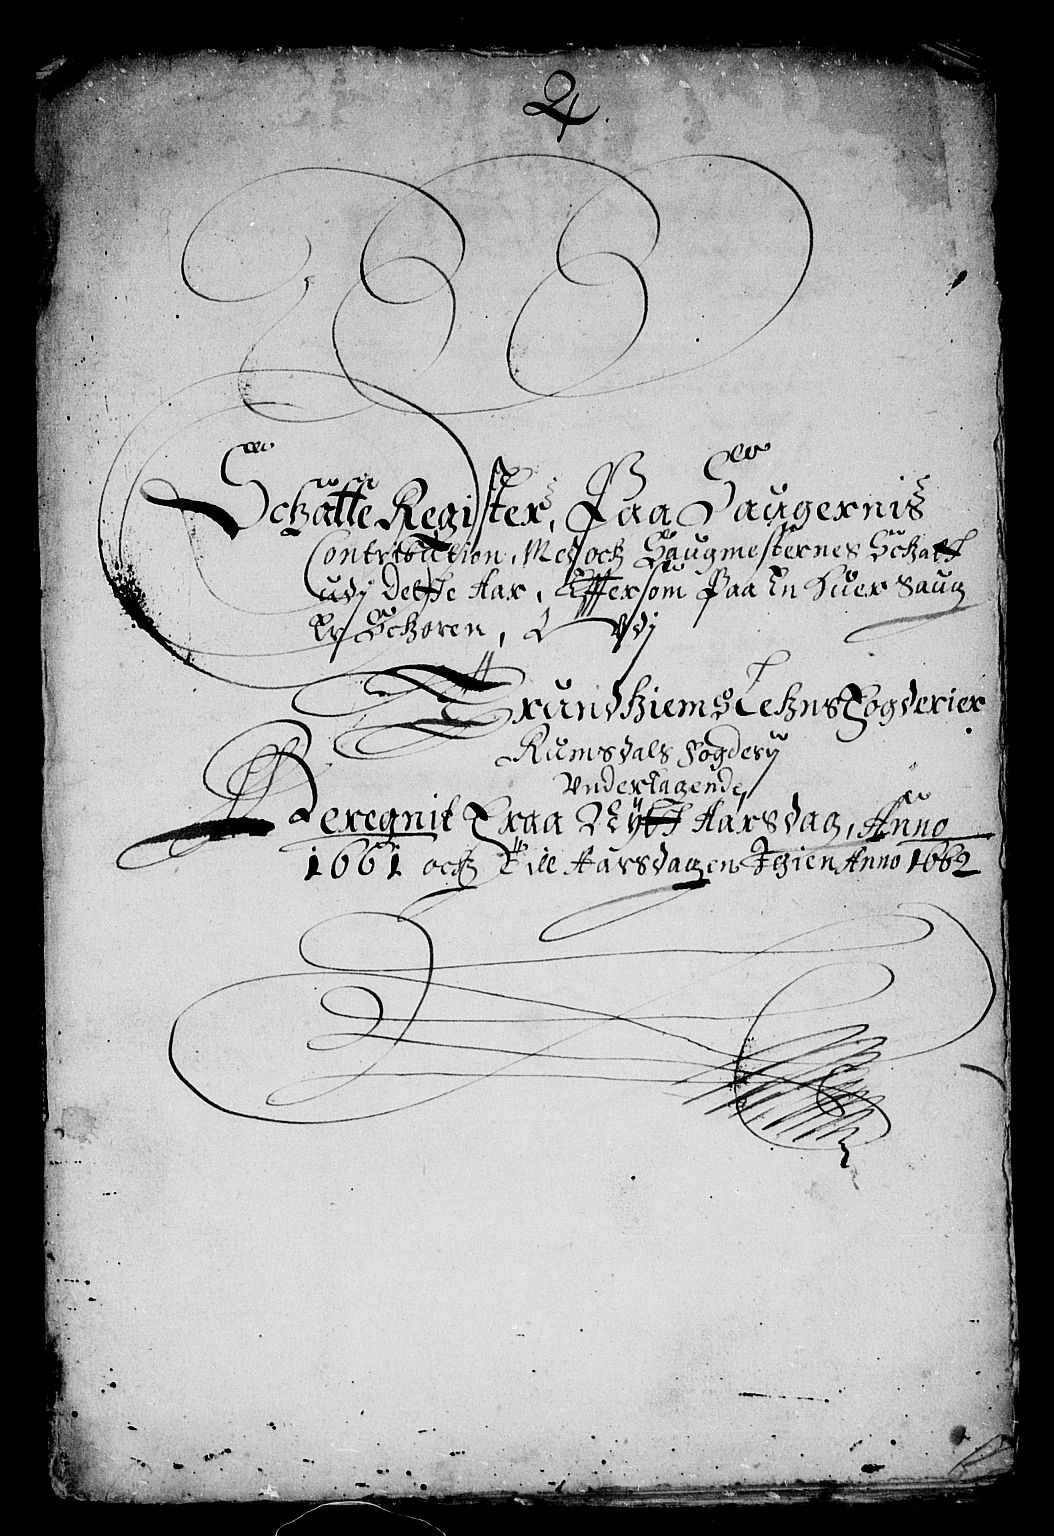 4
Schatte Register, Paa Saugernis
Contribution, Med och Saugmesternes Schatt
udj Dette Aar, Effersom Paa En huer Saug
Er Schoren, Vdj
Trundhiems Lehns Fogderier
Rumsdals fogderij
Vnderlagende
Beregnit Fraa Nytt Aarsdag, Anno
1661 och Till Aarsdagen Igien Anno 1662